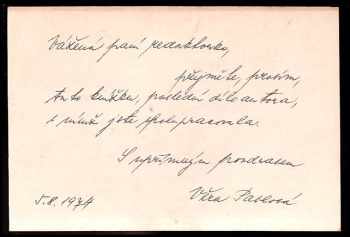 Vážená paní redaktorko,
přijměte, prosím,
tuto knížku, poslední dílo autora,
s nímž jste spolupracovala.
S upřímným pozdravem
5.8.1974 Věra Pavlová